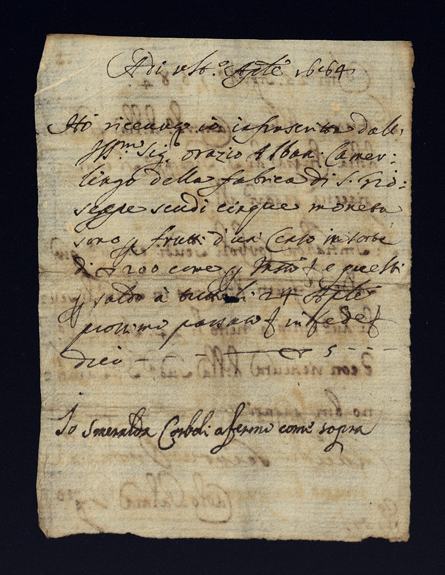 Adi 
Ho ricevuto io infrascritta dall
Ill.mo Sig. orazio Albani Camer-
lingo della fabrica di S. Gio-
seppe scudi cinque moneta
sono p frutti d'un Censo in sorte
di 200 come p e questi
p saldo a 24
prossimo passato in fede
dico 5 - - -
Io Smeralda Corboli afermo come sopra